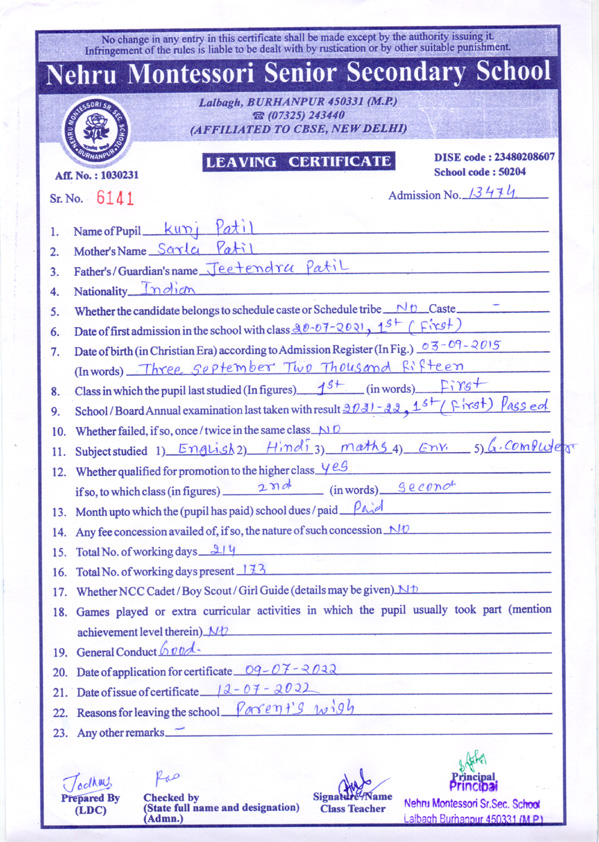 No change in any entry in this certificate shall be made except by the authority issuing it.
Infringement of the rules is liable to be dealt with by rustication or by other suitable punishment.
Nehru Montessori Senior Secondary School
Lalbagh, BURHANPUR 450331 (M.P.)
☎ (07325) 243440
(AFFILIATED TO CBSE, NEW DELHI)
NEHRU MONTESSORI SR. SEC. SCHOOL
BURHANPUR
LEAVING CERTIFICATE
DISE code : 23480208607
School code : 50204
Aff. No. : 1030231
Sr. No. 6141
Admission No. 13474
1. Name of Pupil Kunj Patil
2. Mother's Name Sarla Patil
3. Father's / Guardian's name Jeetendra Patil
4. Nationality Indian
5. Whether the candidate belongs to schedule caste or Schedule tribe NO Caste -
6. Date of first admission in the school with class 20-07-2021, 1st (First)
7. Date of birth (in Christian Era) according to Admission Register (In Fig.) 03-09-2015
(In words) Three September Two Thousand Fifteen
8. Class in which the pupil last studied (In figures) 1st (in words) First
9. School / Board Annual examination last taken with result 2021-22, 1st (First) Passed
10. Whether failed, if so, once / twice in the same class NO
11. Subject studied 1) English 2) Hindi 3) maths 4) Env. 5) G. Computer
12. Whether qualified for promotion to the higher class yes
if so, to which class (in figures) 2nd (in words) Second
13. Month upto which the (pupil has paid) school dues / paid Paid
14. Any fee concession availed of, if so, the nature of such concession NO
15. Total No. of working days 214
16. Total No. of working days present 173
17. Whether NCC Cadet / Boy Scout / Girl Guide (details may be given) NO
18. Games played or extra curricular activities in which the pupil usually took part (mention
achievement level therein) NO
19. General Conduct Good-
20. Date of application for certificate 09-07-2022
21. Date of issue of certificate 12-07-2022
22. Reasons for leaving the school Parent's wish
23. Any other remarks -
Rao
Prepared By
(LDC)
Checked by
(State full name and designation)
(Admn.)
Signature/Name
Class Teacher
Principal
Principal
Nehru Montessori Sr.Sec. School
Lalbagh Burhanpur 450331 (M.P.)